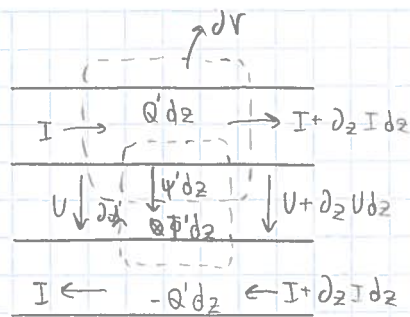 ∂V
I → Q'dz → I + ∂z I dz
U ↓ ↓ ψ'dz ↓ U + ∂z U dz
Φ'dz
I ← -Q'dz ← I + ∂z I dz